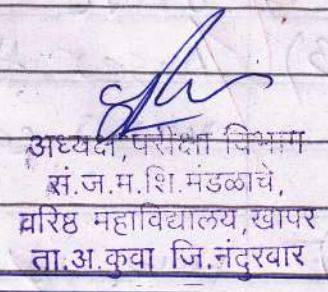 अध्यक्ष, परीक्षा विभाग
सं.ज.म.शि.मंडळाचे,
वरिष्ठ महाविद्यालय, खापर
ता.अ.कुवा जि.नंदुरवार